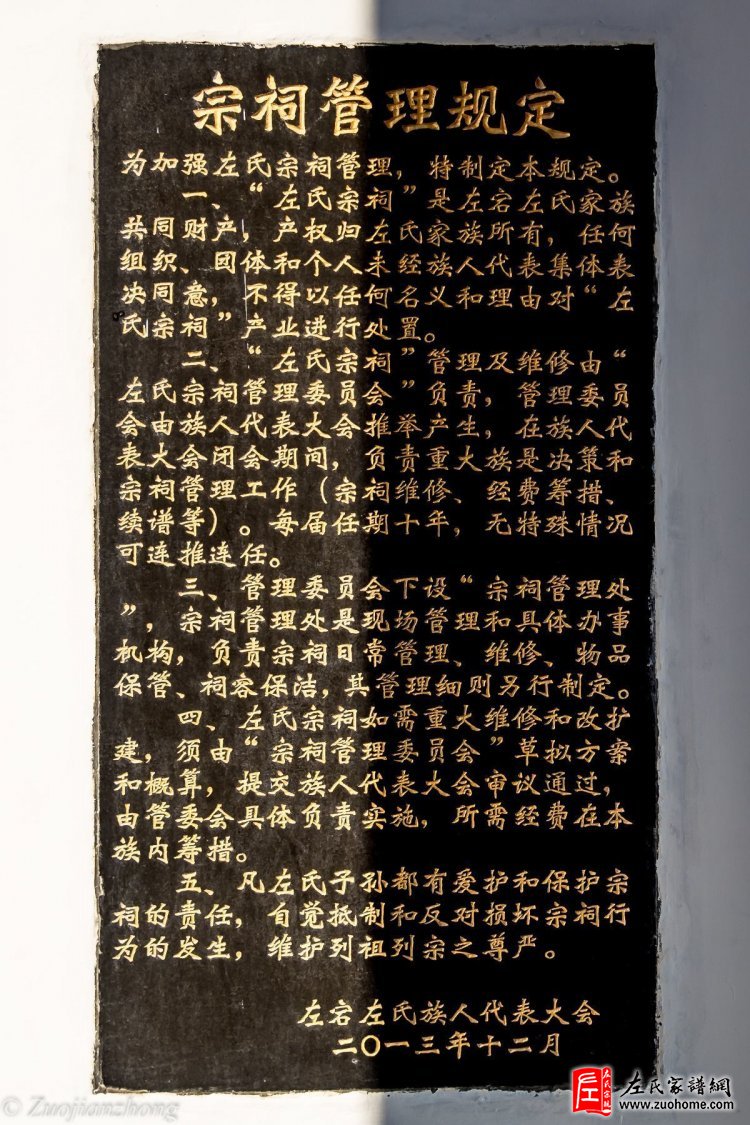 宗祠管理规定
为加强左氏宗祠管理，特制定本规定。
一、“左氏宗祠”是左宕左氏家族
共同财产，产权归左氏家族所有，任何
组织、团体和个人未经族人代表集体表
决同意，不得以任何名义和理由对“左
氏宗祠”产业进行处置。
二、“左氏宗祠”管理及维修由“
左氏宗祠管理委员会”负责，管理委员
会由族人代表大会推举产生，在族人代
表大会闭会期间，负责重大族是决策和
宗祠管理工作（宗祠维修、经费筹措、
续谱等）。每届任期十年，无特殊情况
可连推连任。
三、管理委员会下设“宗祠管理处
”，宗祠管理处是现场管理和具体办事
机构，负责宗祠日常管理、维修、物品
保管、祠容保洁，其管理细则另行制定。
四、左氏宗祠如需重大维修和改扩
建，须由“宗祠管理委员会”草拟方案
和概算，提交族人代表大会审议通过，
由管委会具体负责实施，所需经费在本
族内筹措。
五、凡左氏子孙都有爱护和保护宗
祠的责任，自觉抵制和反对损坏宗祠行
为的发生，维护列祖列宗之尊严。
左宕左氏族人代表大会
二〇一三年十二月
© Zuojianzhong
左氏家譜網
www.zuohome.com